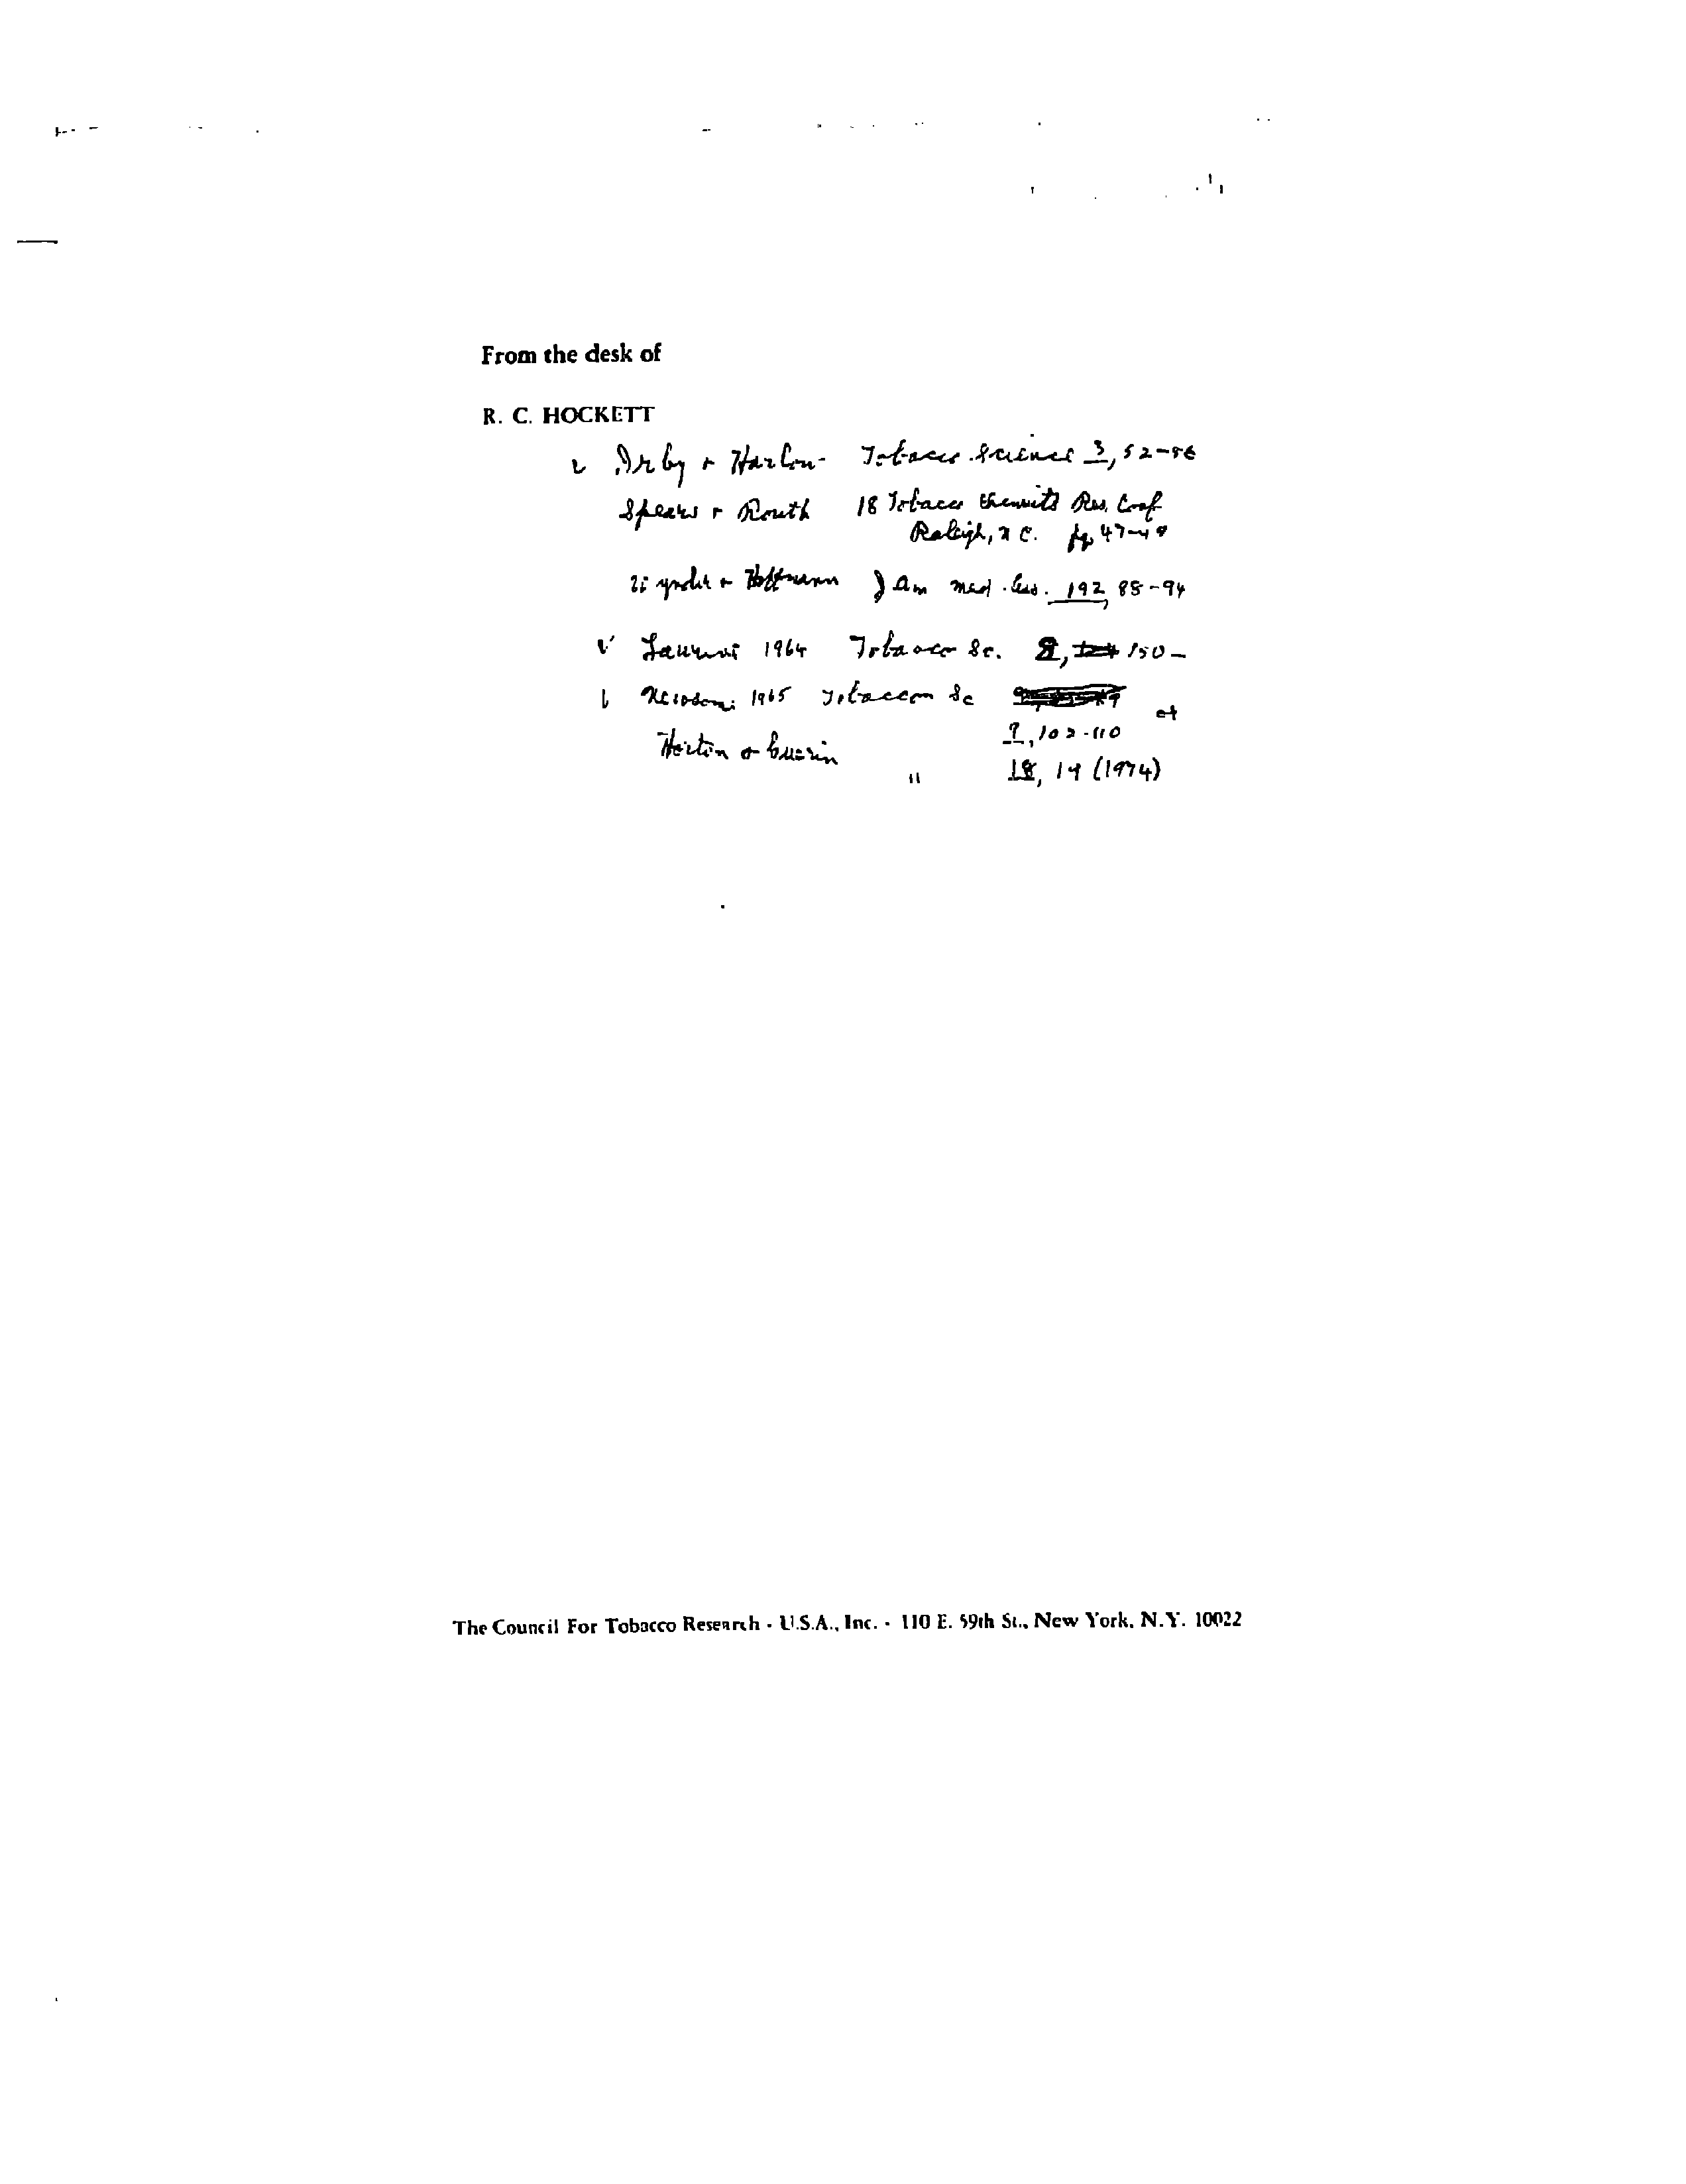 From the desk of
R. C. HOCKETT
Irby + Harlow Tobacco Science 3, 52-56
Spears + Routh 18 Tobacco Chemists Res. Conf
Raleigh, N C. pg 47-49
Wynder + Hoffmann J Am Med. Ass. 192, 88-94
1964 Tobacco Sc. 8, 150-
1965 Tobacco Sc
et
9, 102-110
Horton +
" 18, 19 (1974)
The Council For Tobacco Research - U.S.A., Inc. - 110 E. 59th St., New York, N.Y. 10022